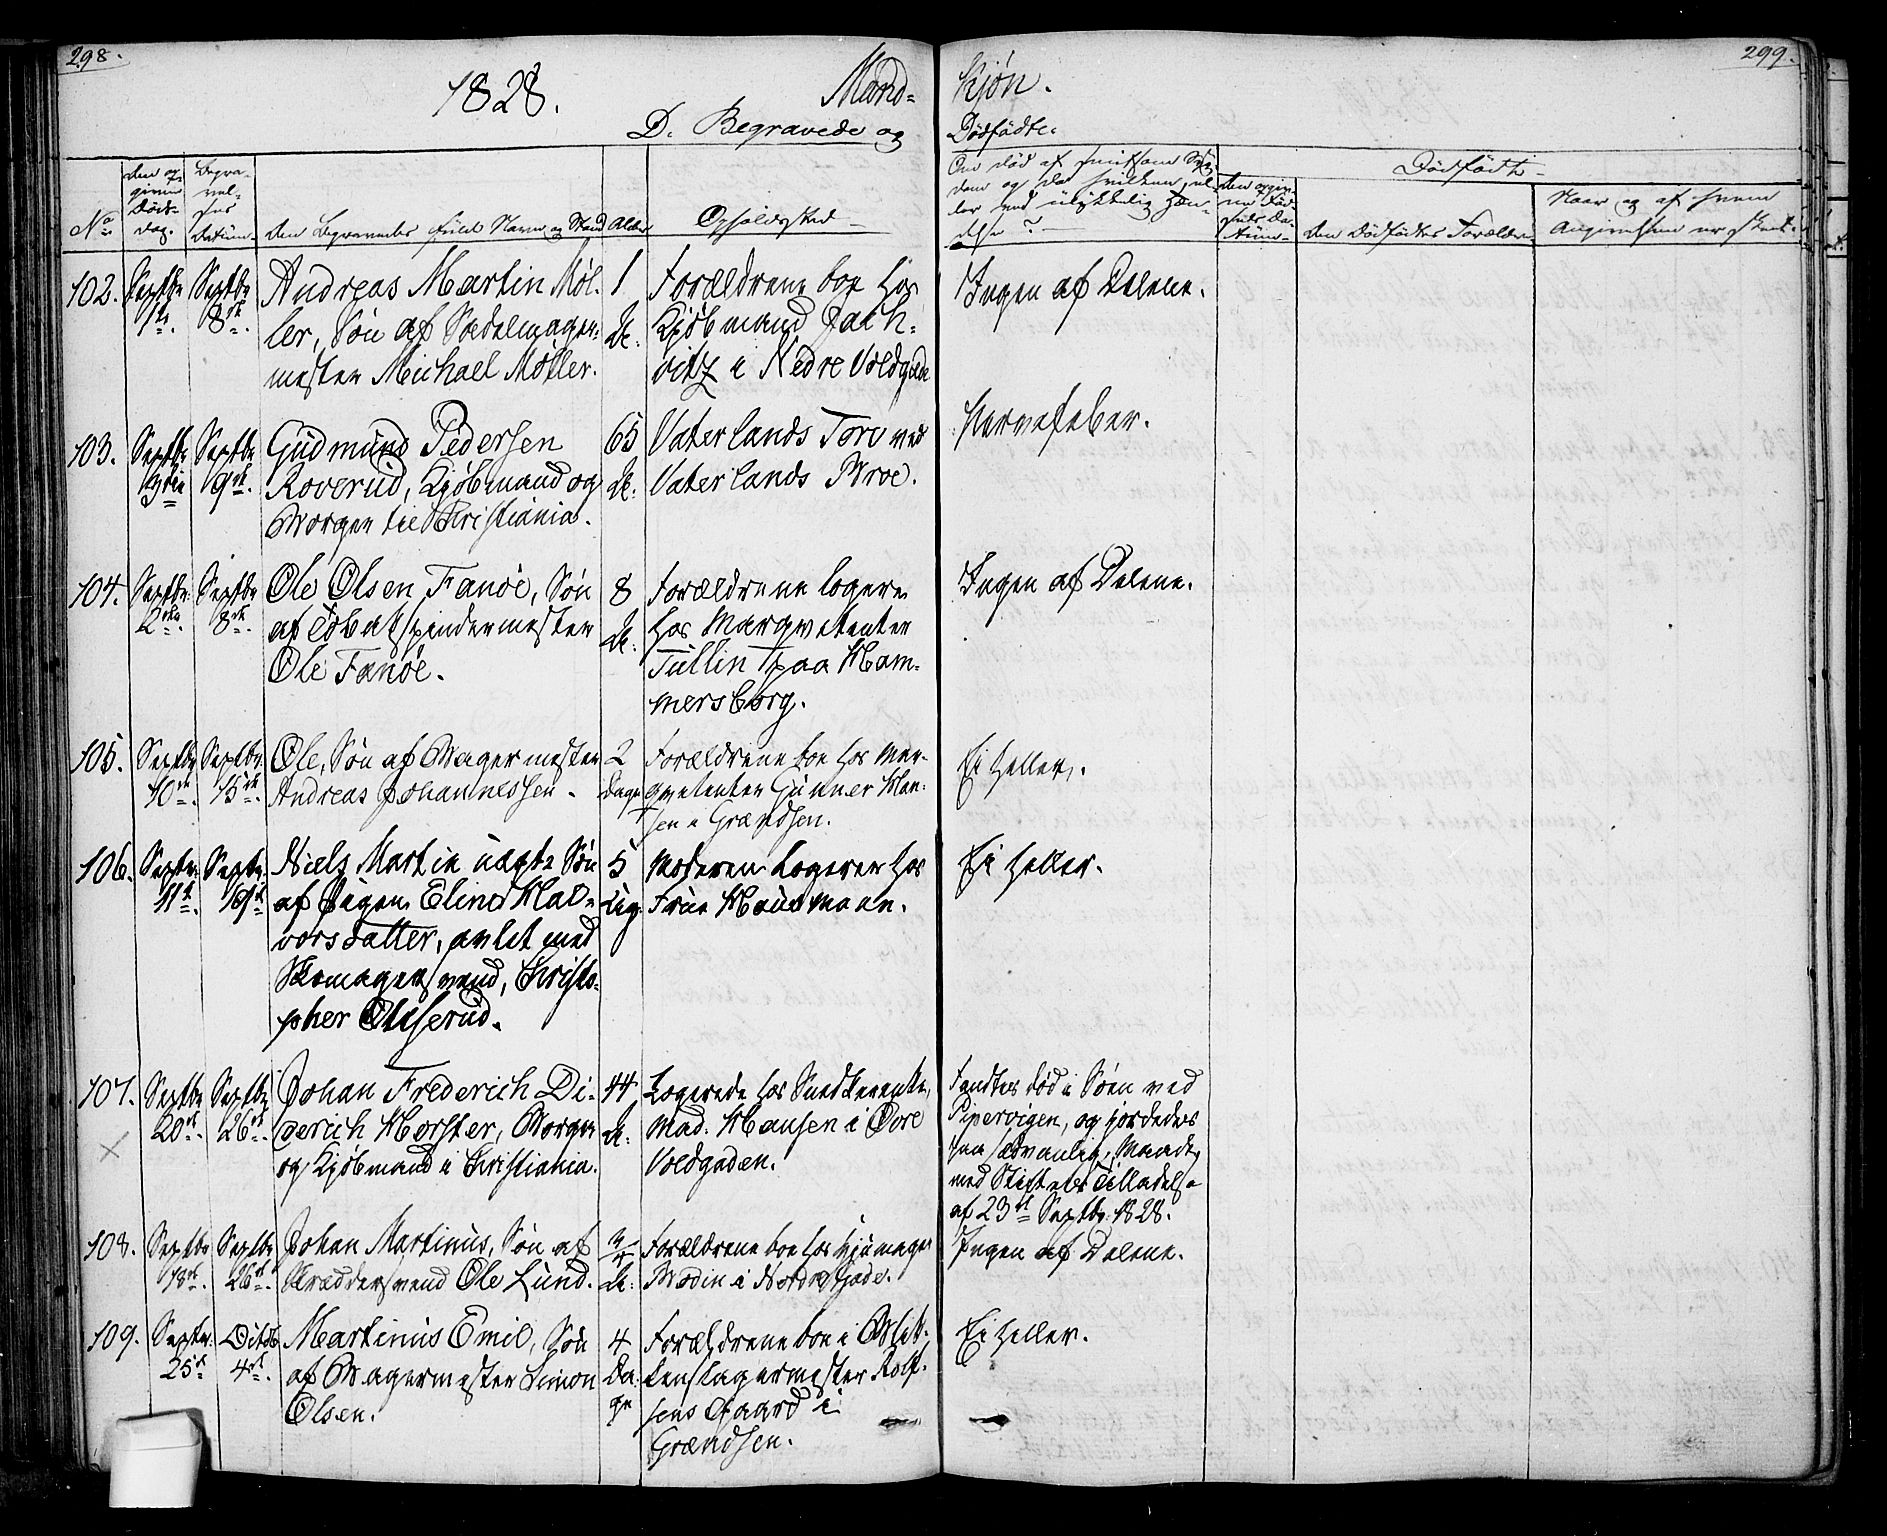 298.
299.
1828.
Mand-
Kjøn.
D. Begravede og
Dødfødte.
No
Den op-
given
Døds-
dag.
Begra-
vel-
ses
Datum
Den Begravedes fulde Navn og Stand
Alder
Opholdssted
Om død af smitsom Syg-
dom og da hvilken, el-
ler ved ulykkelig Hæn-
delse?
Dødfødte
Den opgiv-
ne Fød-
sels Da-
tum
Den Dødfødtes Forældre
Naar og af hvem
Angivelsen er skeet.
102.
Septbr
1ste.
Septbr
8de.
Andreas Martin Møl-
ler, Søn af Sadelmager-
mester Michael Møller.
1
Forældrene boe hos
Kjøbmand
i Nedre Voldgade
Ingen af Delene.
103.
Septbr
3die
Septbr
9de.
Gudmund Pedersen
Roverud, Kjøbmand og
Borger til Christiania.
65
Vaterlands Torv ved
Vaterlands Broe.
Nervefeber.
104.
Septbr.
2den.
Septbr
8de.
Ole Olsen Fanøe, Søn
af Tobakspindermester
Ole Fanøe.
8
Forældrene logere
hos Marqvetenter
Tullin paa Ham-
mersborg.
Ingen af Delene.
105.
Septbr
10de.
Septbr.
15de.
Ole, Søn af Bagermester
Andreas Johannessen.
2
Dage
Forældrene boe hos Mar-
qvetenter Gunner Han-
sen i Grændsen.
Ei heller.
106.
Septbr.
11te.
Septbr.
Niels Martin uægte Søn
af Pigen Eline Hal-
vorsdatter, avlet med
Skomagersvend, Christo-
pher Olsserud.
5
Moderen logerer hos
Frue Hausmann.
Ei heller.
107.
Septbr
20de.
Septbr
26de.
Johan Frederich Di-
derich Horster, Borger
og Kjøbmand i Christiania.
44
Logerede hos Snedkerenke,
Mad. Hansen i Øvre
Voldgaden.
Fandtes død i Søen ved
Pipervigen, og jordedes
paa sædvanlig Maade,
med Stiftets Tilladelse
af 23de Septbr. 1828.
108.
Septbr
18de.
Septbr
26de.
Johan Martinus, Søn af
Skræddersvend Ole Lund.
3/4
Forældrene boe hos Hjulmager
Modin i Nordre Gade.
Ingen af Delene.
109.
Septbr.
25de
4de.
Martinus Emil, Søn
af Bagermester Simon
Olsen.
4
Da-
ge
Forældrene boe i Blik-
kenslagermester Rolf-
sens Gaard i
Grændsen.
Ei heller.